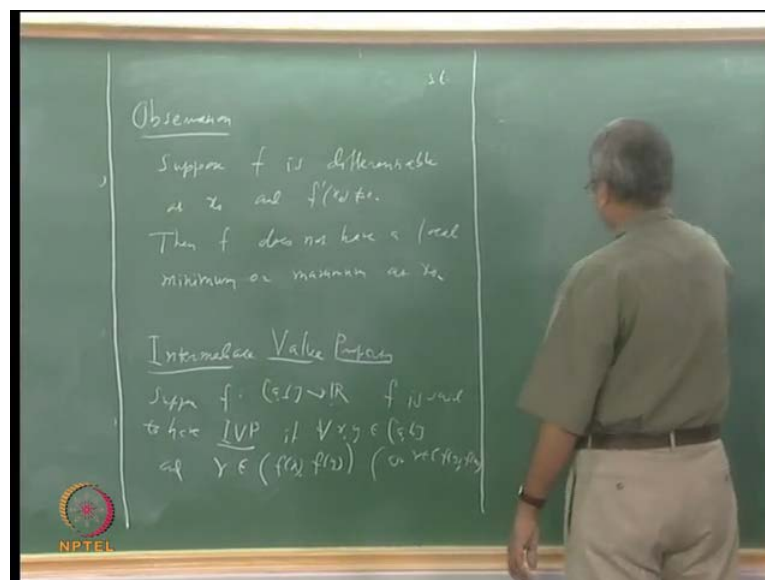 st.
Observation
Suppose f is differentiable
at x₀ and f'(x₀) ≠ 0.
Then f does not have a local
minimum or maximum at x₀.
Intermediate Value Property
Suppose f: [a,b] → ℝ f is said
to have IVP if ∀ x, y ∈ [a,b]
and γ ∈ (f(x), f(y)) (or γ ∈ (f(y), f(x))
NPTEL